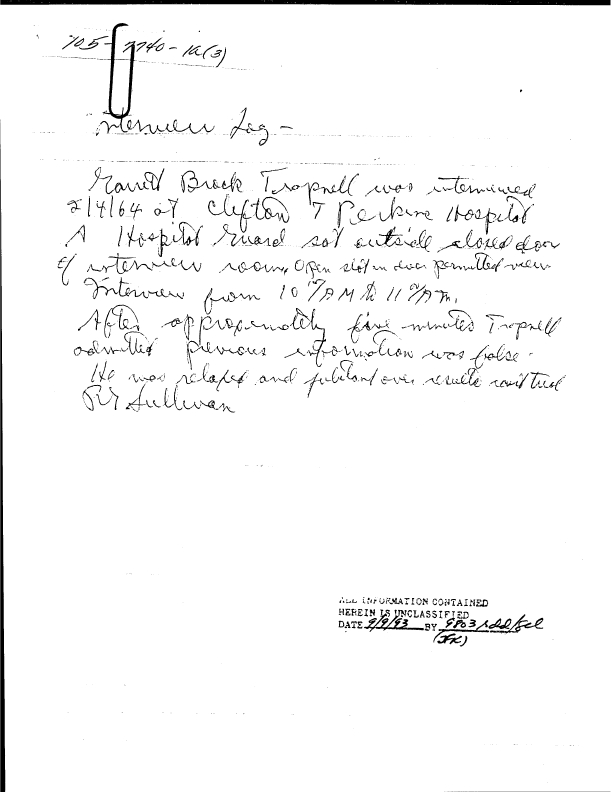 105-7740-1a(3)
Interview Log -
Garrett Brock Trapnell was interviewed
2/4/64 at Clifton T Perkins Hospital
A Hospital Guard sat outside closed door
of interview room. Open slot in door permitted view
Interview from 10 AM to 11 AM.
After approximately five minutes Trapnell
admitted previous information was false.
He was relaxed and jubilant over results
Sullivan
ALL INFORMATION CONTAINED
HEREIN IS UNCLASSIFIED
DATE 9/9/93 BY 9803
(JFK)